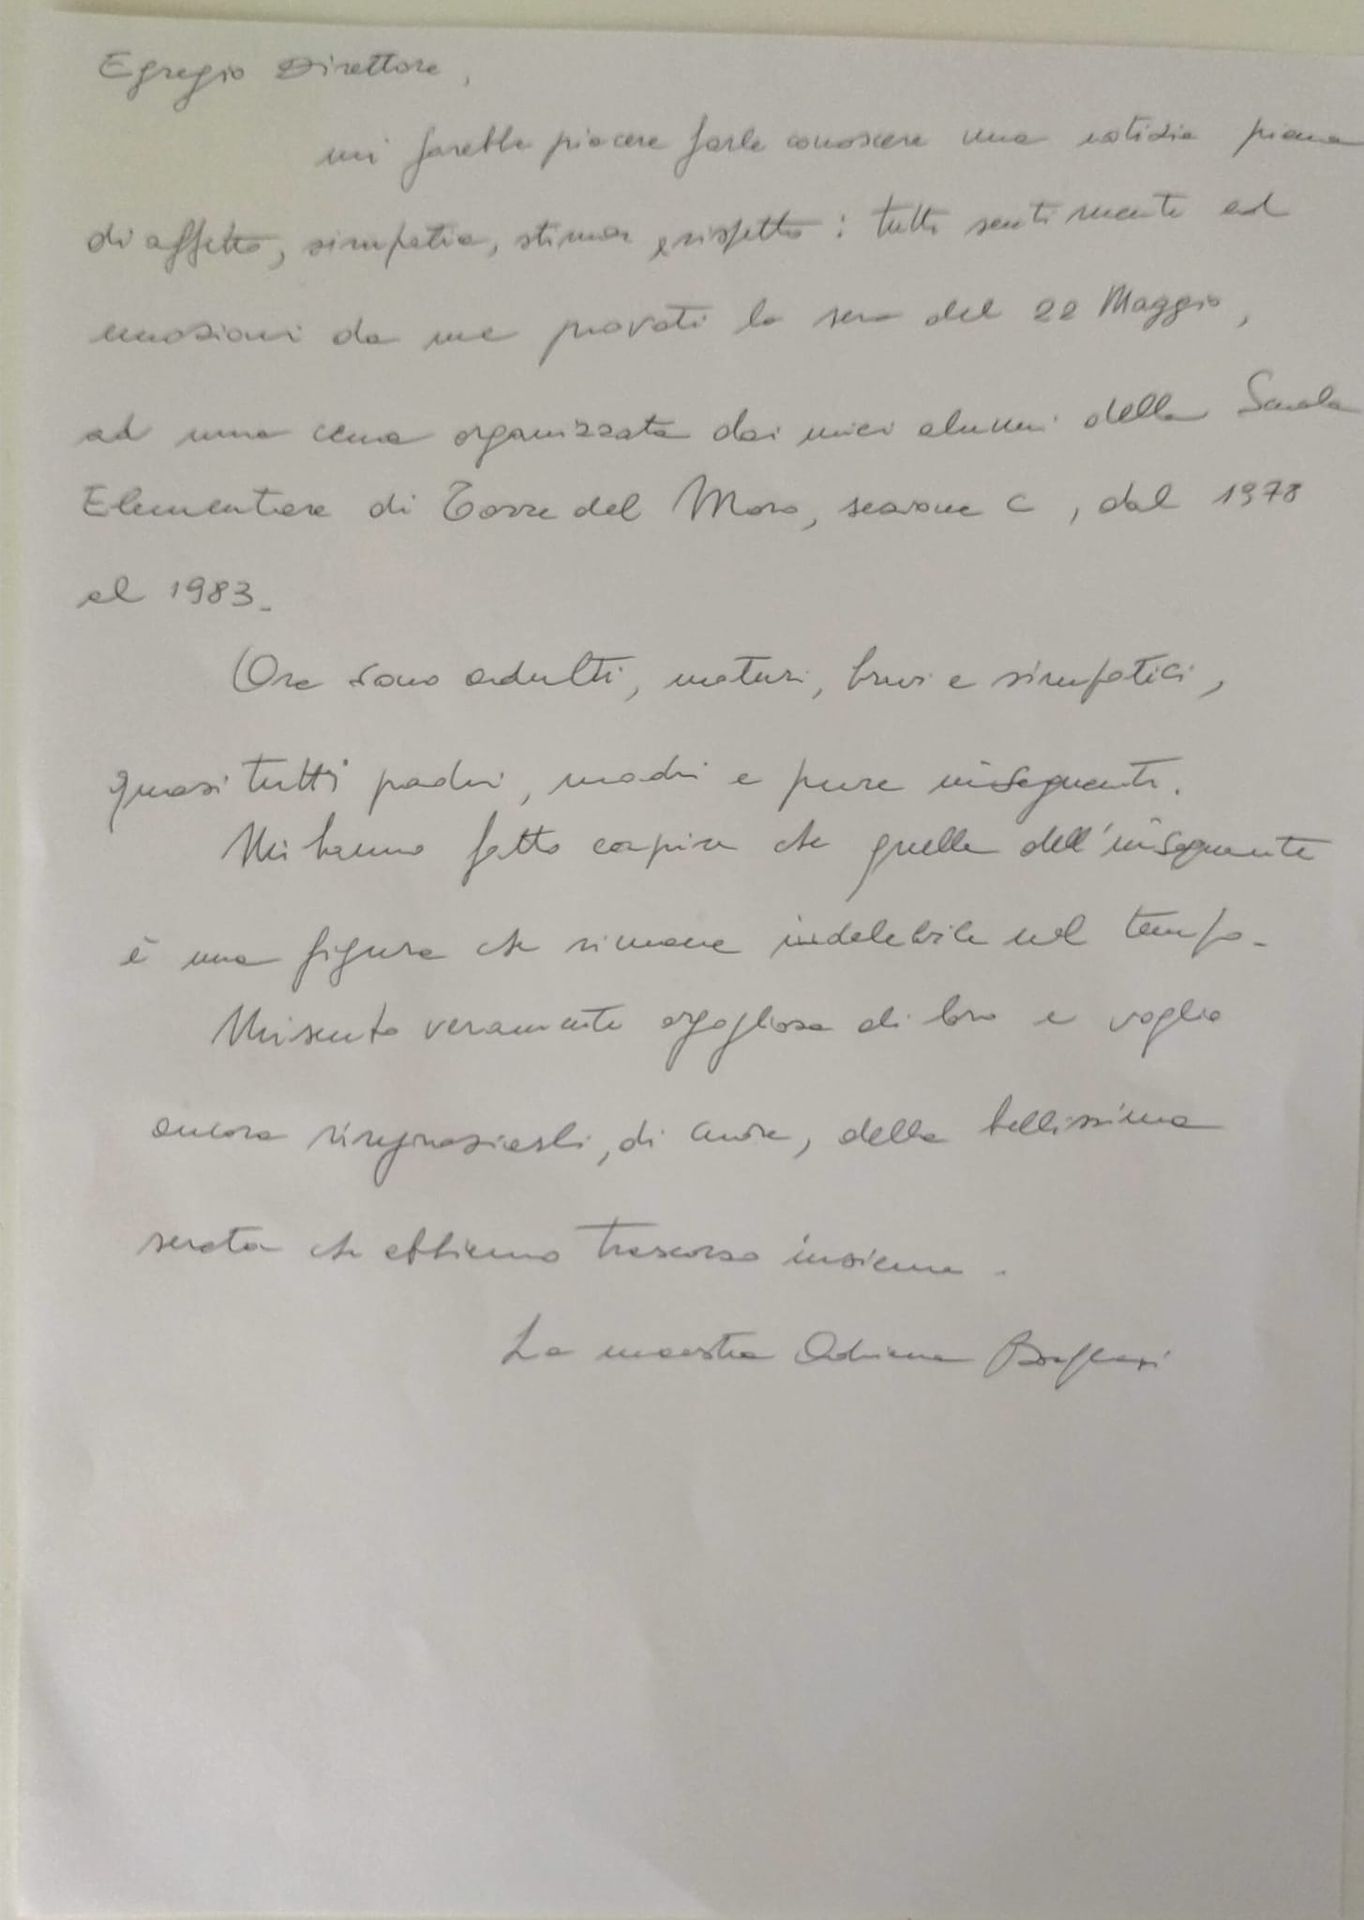 Egregio Direttore,
mi farebbe piacere farle conoscere una notizia piena
di affetto, simpatia, stima e rispetto: tutti sentimenti ed
emozioni da me provati la sera del 22 Maggio,
ad una cena organizzata dai miei alunni della Scuola
Elementare di Torre del Moro, sezione C, dal 1978
al 1983.
Ora sono adulti, maturi, bravi e simpatici,
quasi tutti padri, madri e pure insegnanti.
Mi hanno fatto capire che quella dell'insegnante
è una figura che rimane indelebile nel tempo.
Mi sento veramente orgogliosa di loro e voglio
ancora ringraziarli, di cuore, della bellissima
serata che abbiamo trascorso insieme.
La maestra Adriana